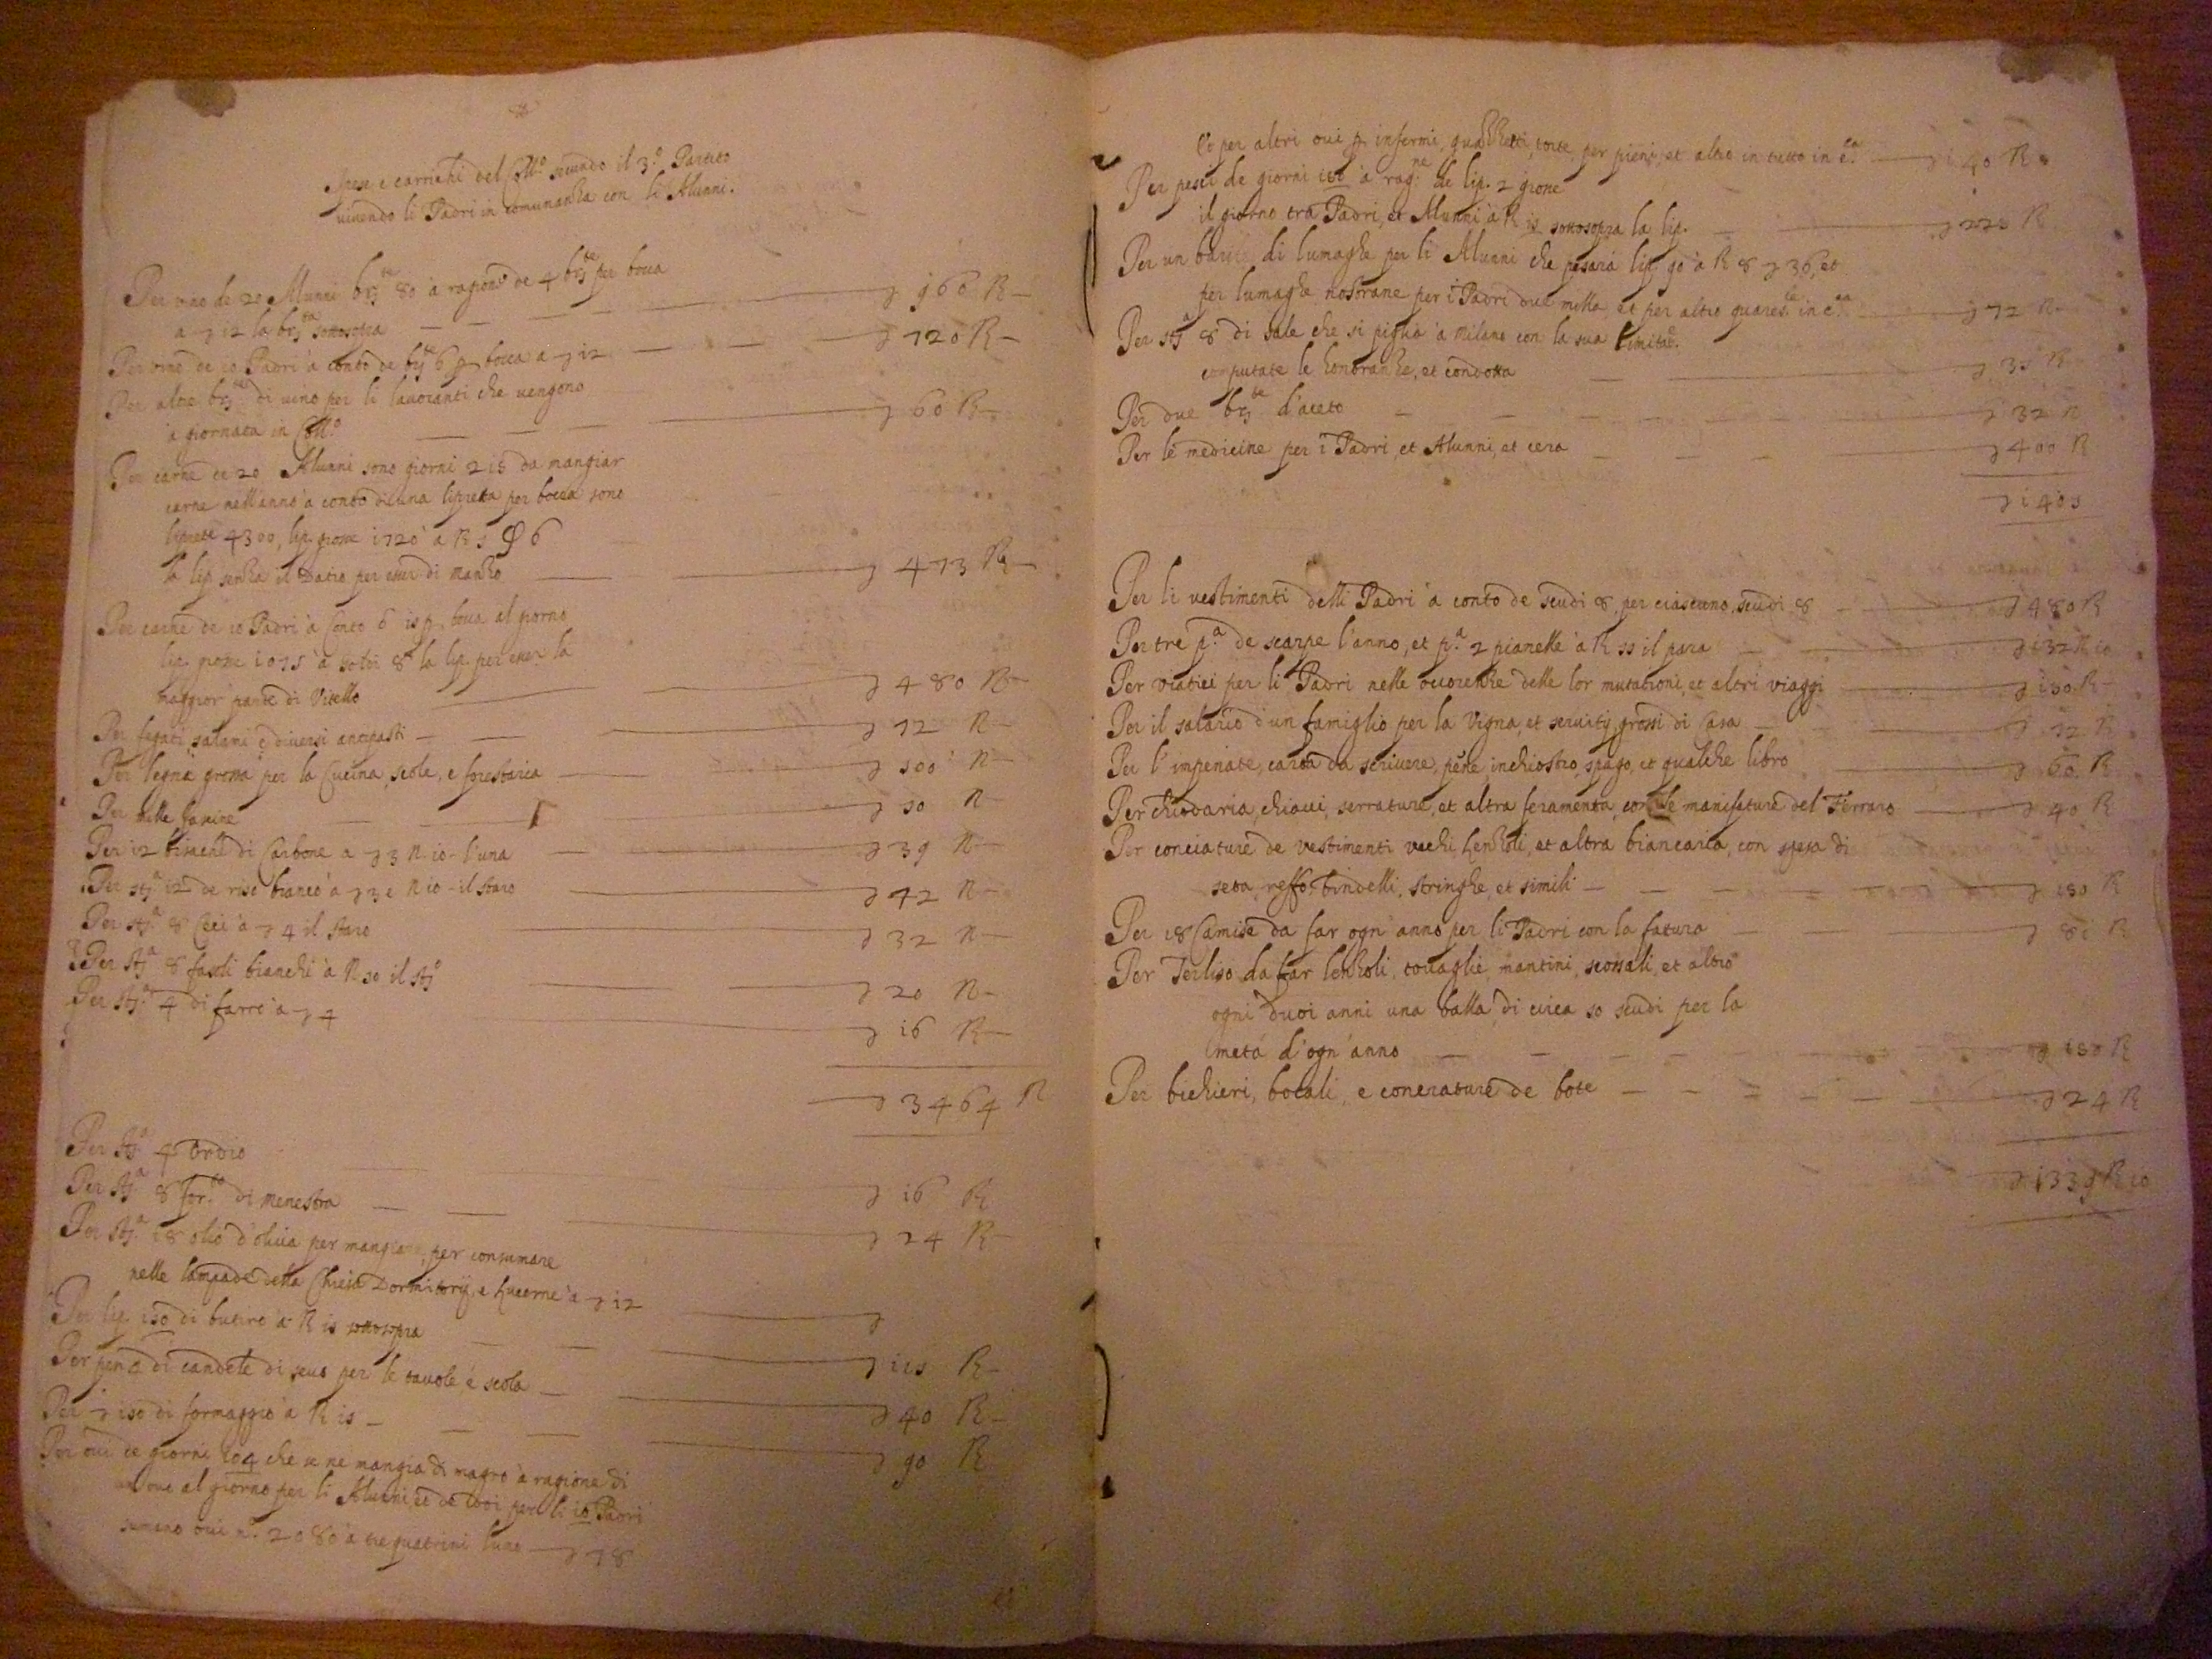 Spese e carrichi del Coll.o secondo il 3.o Partito
vivendo li Padri in comunanza con li Alunni.
Per vino de 20 Alunni br.te 80 à ragione de 4 br.te per bocca
a 12 la br.ta sottosopra 960 R
Per vino de 10 Padri à conto de br.te 6 p bocca a 12 720 R
Per altre br.te di vino per li lavoranti che vengono
à giornata in Coll.o 60 R
Per carne de 20 Alunni sono giorni 215 da mangiar
carne nell'anno à conto di una lipretta per bocca sono
liprette 4300, lip. grosse 1720 à R 5 6
la lip senza il Datio per esser di Manzo 473 R
Per carne de 10 Padri à conto 15 p bocca al giorno
lip. grosse 1075 à soldi 8 la lip. per esser la
maggior parte di Vitello 480 R
Per fegati, salami e diversi antipasti 12 R
Per legna grossa per la Cucina, scole, e forestaria 300 R
Per mille fassine 50 R
Per 12 di Carbone a 3 R 10 l'una 39 R
Per st.a 12 de riso bianco à 3 e R 10 il staro 42 R
Per st.a 8 Ceci à 4 il staro 32 R
Per st.a 8 fasoli bianchi à R 50 il st.o 20 R
Per st.a 4 di farro à 4 16 R
3464 R
Per st.a 4 Ordio 16 R
Per st.a 8 di menestra 24 R
Per st.a 18 olio d'oliva per mangiare, per consumare
nelle lampade della Chiesa Dormitorij, e lucerne à 12
Per lip. 150 di butiro à R 15 sottosopra 115 R
Per di candele di sevo per le tavole é scola 40 R
Per 150 di formaggio à R 15 90 R
Per ovi de giorni 104 che se ne mangia di magro à ragione di
un ovo al giorno per li Alunni et de dovi per li 10 Padri
sumano ovi n.o 2080 à tre quatrini l'uno 78
Et per altri ovi p infermi, torte, per pieni, et altro in tutto in c.a 140 R
Per pesci de giorni 151 à rag.ne de lip. 2 grosse
il giorno tra Padri, et Alunni à R 15 sottosopra la lip. 225 R
Per un di lumaghe per li Alunni che pesarà lip. 90 à R 8 36, et
per lumaghe nostrane per i Padri due mille, et per altro quares.le in c.ca 72 R
Per st.a 8 di sale che si piglia à Milano con la sua
computate le honoranze, et condotta 35 R
Per due br.te d'aceto 32 R
Per le medicine per i Padri, et Alunni, et cera 400 R
1405
Per li vestimenti delli Padri à conto de scudi 8, per ciascuno, scudi 8 480 R
Per tre p.a de scarpe l'anno, et p.a 2 pianelle à R 55 il para 132 R 10
Per viatici per li Padri nelle occorenze delle lor mutationi, et altri viaggi 150 R
Per il salario d'un famiglio per la Vigna, et servitij grossi di Casa 72 R
Per l'impenate, carta da scrivere, pene, inchiostro, spago, et qualche libro 60 R
Per chiodaria, chiavi, serrature, et altra feramenta, con le manifature del Ferraro 40 R
Per conciature de vestimenti vechi, lenzoli, et altra biancaria, con spesa di
seta, reffo, bindelli, stringhe, et simili 150 R
Per 18 Camise da far ogn'anno per li Padri con la fatura 81 R
Per Terliso da far lenzoli, tovaglie, mantini, scossali, et altro
ogni duoi anni una balla di circa 50 scudi per la
metà d'ogn'anno 150 R
Per bichieri, bocali, e conciature de botte 24 R
1339 R 10